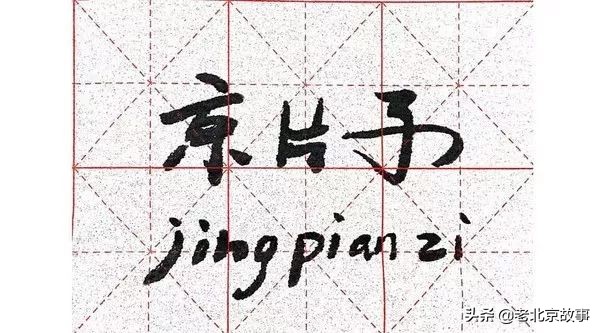 京片子
jing pian zi
头条 @老北京故事